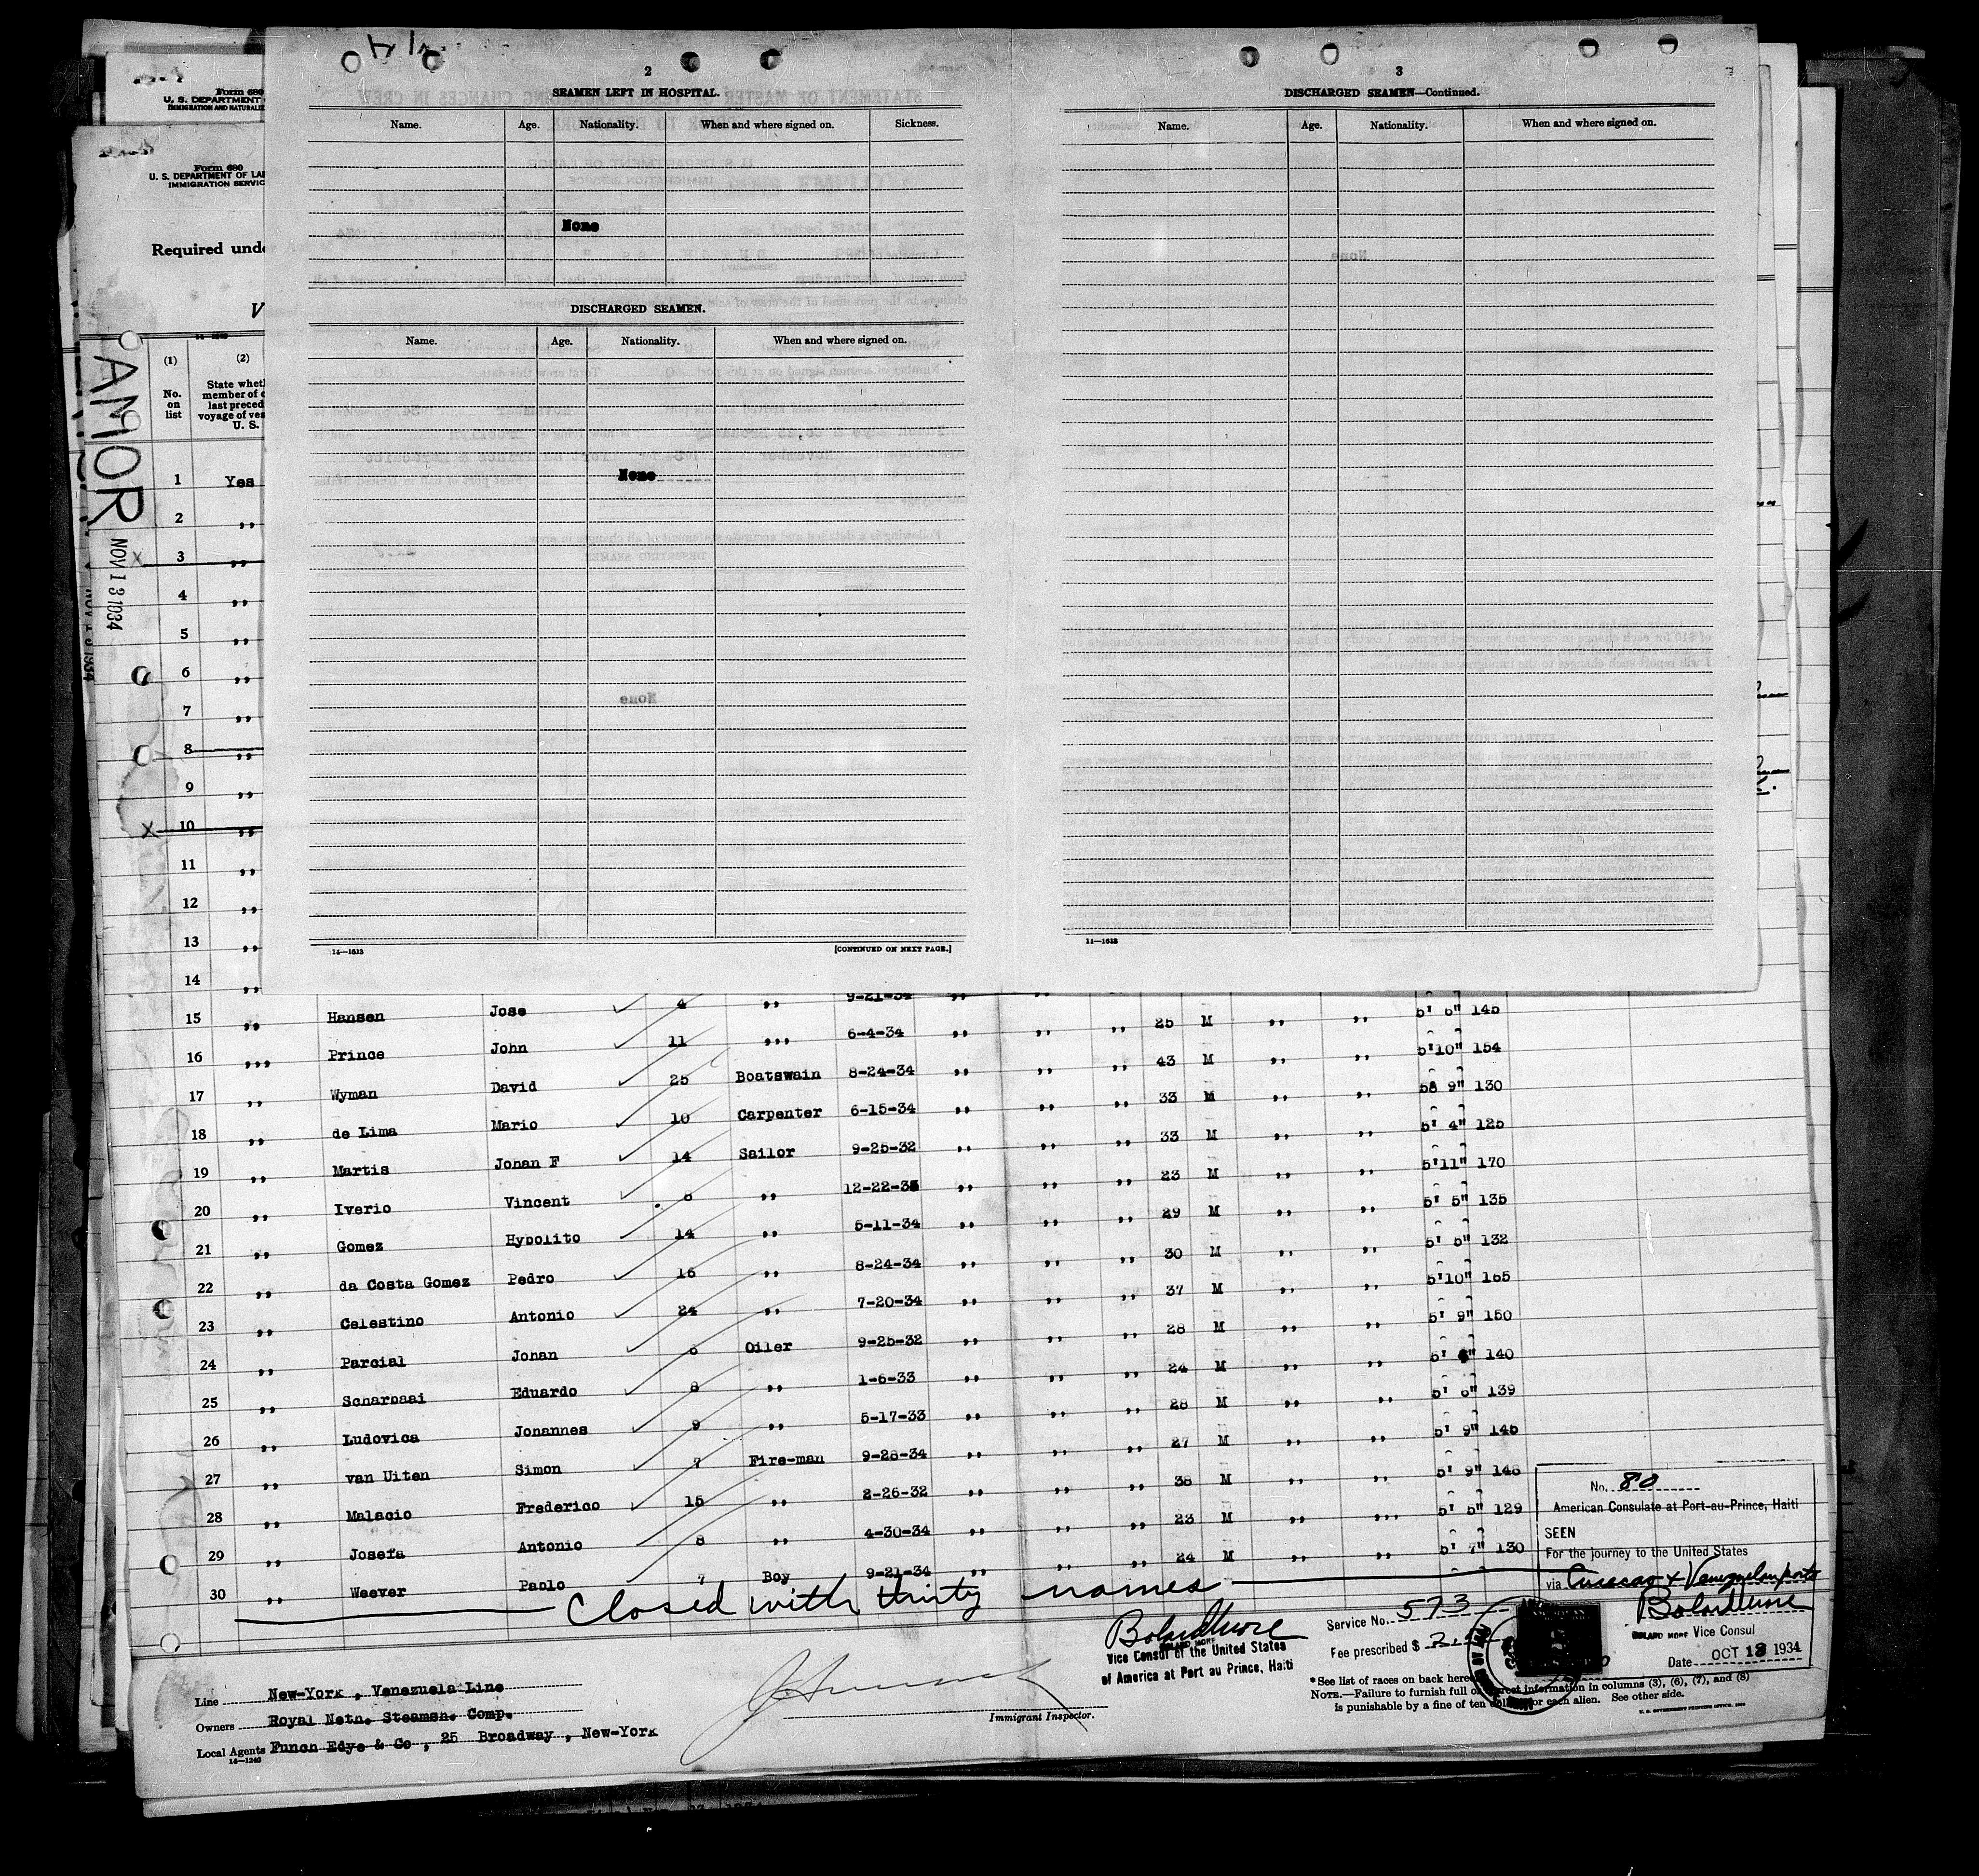 2
SEAMEN LEFT IN HOSPITAL.
Name. Age. Nationality. When and where signed on. Sickness.
None
DISCHARGED SEAMEN.
Name. Age. Nationality. When and where signed on.
None
14—1613 [CONTINUED ON NEXT PAGE.]
3
DISCHARGED SEAMEN—Continued.
Name. Age. Nationality. When and where signed on.
Form 680
U. S. DEPARTMENT
IMMIGRATION AND NATURALIZ
Form 680
U. S. DEPARTMENT OF LAB
IMMIGRATION SERVIC
Required unde
V
AMOR
NOV 13 1934
(1) (2)
No. on list
State wheth
member of c
last preced
voyage of ves
U. S.
1 Yes
2 ,,
3 ,,
4 ,,
5 ,,
6 ,,
7 ,,
8 ,,
9 ,,
10 ,,
11 ,,
12 ,,
13 ,,
14 ,,
15 ,, Hansen Jose 4 ,, 9-21-34 ,, ,, ,, 25 M ,, ,, 5' 6" 145
16 ,,, Prince John 11 ,,, 6-4-34 ,, ,, ,, 43 M ,, ,, 5'10" 154
17 ,, Wyman David 25 Boatswain 8-24-34 ,, ,, ,, 33 M ,, ,, 58 9" 130
18 ,, de Lima Mario 10 Carpenter 6-15-34 ,, ,, ,, 33 M ,, ,, 5' 4" 125
19 ,, Martis Johan F 14 Sailor 9-25-32 ,, ,, ,, 23 M ,, ,, 5'11" 170
20 ,, Iverio Vincent 6 ,, 12-22-33 ,, ,, ,, 29 M ,, ,, 5' 5" 135
21 ,, Gomez Hypolito 14 ,, 5-11-34 ,, ,, ,, 30 M ,, ,, 5' 5" 132
22 ,, da Costa Gomez Pedro 16 ,, 8-24-34 ,, ,, ,, 37 M ,, ,, 5'10" 155
23 ,, Celestino Antonio 24 ,, 7-20-34 ,, ,, ,, 28 M ,, ,, 5' 9" 150
24 ,, Parcial Johan 6 Oiler 9-25-32 ,, ,, ,, 24 M ,, ,, 5' 140
25 ,, Scharbaai Eduardo 8 ,, 1-6-33 ,, ,, ,, 28 M ,, ,, 5' 6" 139
26 ,, Ludovica Johannes 9 ,, 5-17-33 ,, ,, ,, 27 M ,, ,, 5' 9" 145
27 ,, van Uiten Simon 7 Fire-man 9-28-34 ,, ,, ,, 38 M ,, ,, 5' 9" 148
28 ,, Malacio Frederico 15 ,, 2-26-32 ,, ,, ,, 23 M ,, ,,, 5' 5" 129
29 ,, Josefa Antonio 8 ,, 4-30-34 ,, ,, ,, 24 M ,, ,, 5' 7" 130
30 ,, Weever Pablo 7 Boy 9-21-34 ,,
Closed with thirty names
No. 80
American Consulate at Port-au-Prince, Haiti
SEEN
For the journey to the United States
via Curacao & Venezuelan ports
Vice Consul
Date OCT 13 1934
Vice Consul of the United States
of America at Port au Prince, Haiti
Service No. 573
Fee prescribed $
Line New-York , Venezuela Line
Owners Royal Neth. Steamsh. Comp.
Local Agents Funch Edye & Co , 25 Broadway , New-York
14—1240
Immigrant Inspector.
*See list of races on back here
NOTE.—Failure to furnish full or correct information in columns (3), (6), (7), and (8)
is punishable by a fine of ten dollars for each alien. See other side.